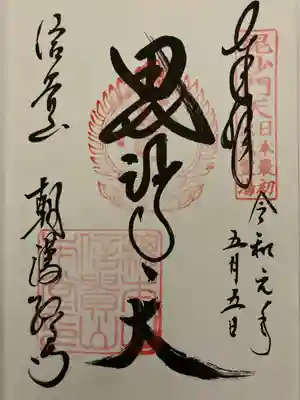 奉拝
毘沙門天日本最初
令和元年
五月五日
毘沙門天
信貴山
朝護孫子寺